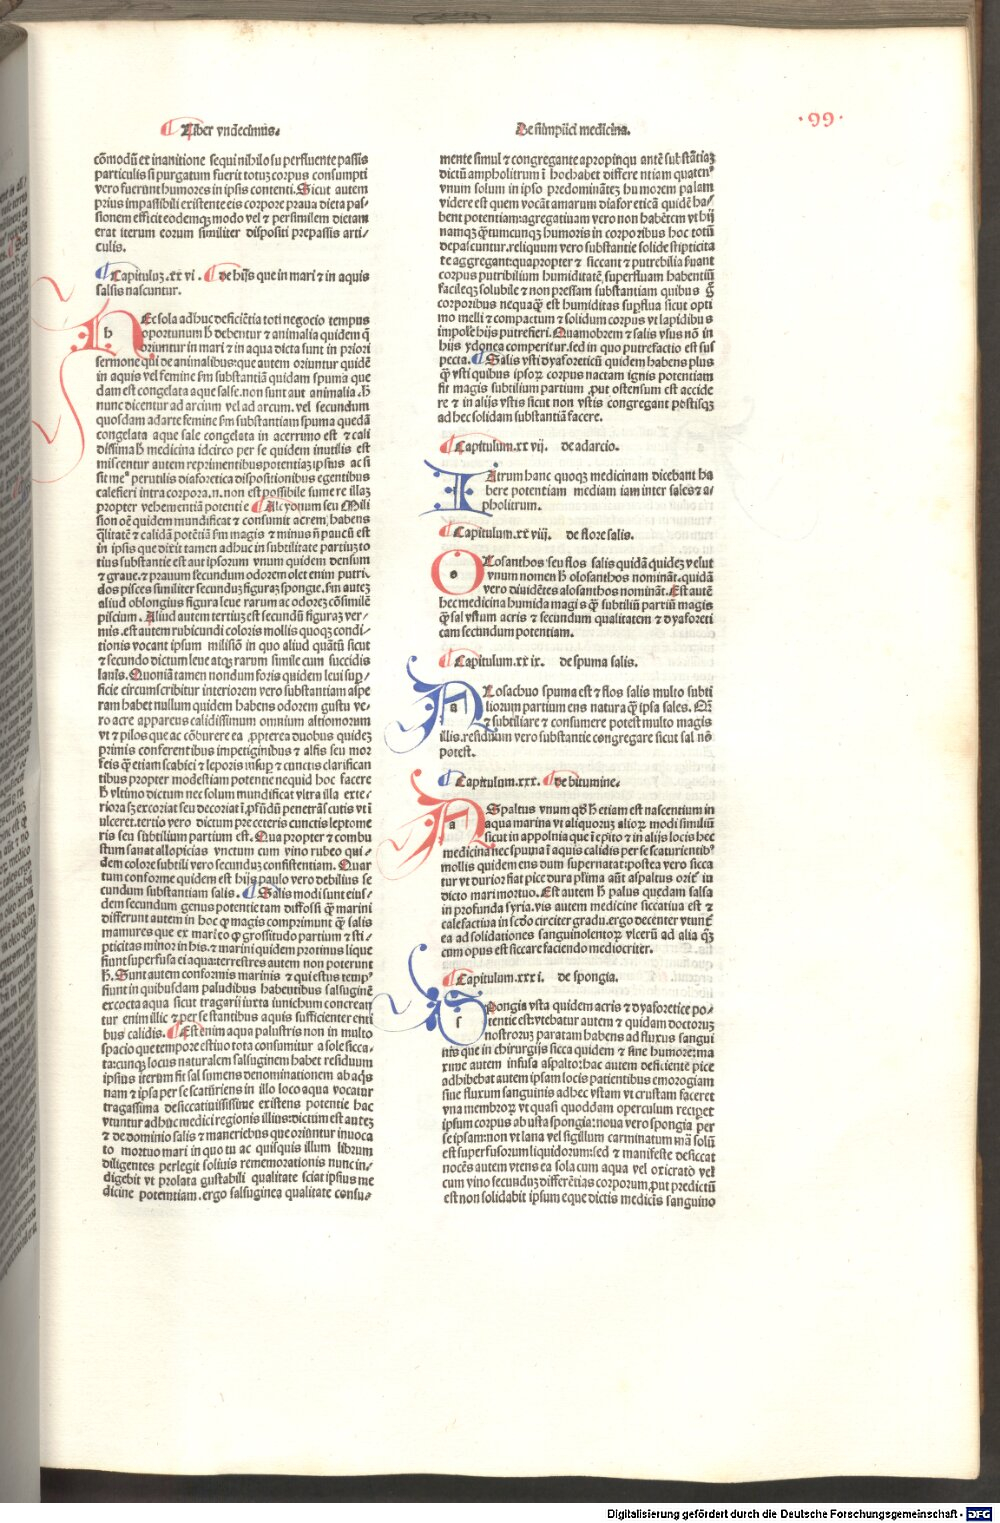 Liber vndecimus.
De simplici medicina.
·99·
cõmodũ et inanitione sequi nihilo su perfluente passis
particulis si purgatum fuerit totuꝫ corpus consumpti
vero fuerunt humores in ipsis contenti. Sicut autem
prius impassibili existente eis corpore praua dieta pas⸗
sionem efficit eodemqꝫ modo vel ⁊ persimilem dietam
erat iterum eorum similiter dispositi prepassis arti⸗
culis.
Capituluꝫ .xx vi . de hijs que in mari ⁊ in aquis
salsis nascuntur.
h Ec sola adhuc deficiẽtia toti negocio tempus
oportunum hꝰ debentur ⁊ animalia quidem q̃
oriuntur in mari ⁊ in aqua dicta sunt in priori
sermone qui de animalibus: que autem oriuntur quidẽ
in aquis vel femine sm̃ substantiã quidam spuma que
dam est congelata aque salse. non sunt aut animalia .hꝰ
nunc dicentur ad arcium vel ad arcum. vel secundum
quosdam adarte femine sm̃ substantiam spuma quedã
congelata aque salse congelata in acerrimo est ⁊ cali
dissima hꝰ medicina idcirco per se quidem inutilis est
miscentur autem reprimentibus potentiaꝫ ipsius ac si
sit me⁹ perutilis diaforetica dispositionibus egentibus
calefieri intra corpora .n. non est possibile sumere illaꝫ
propter vehementiã potentie Alcyonum seu Mili
sion oẽ quidem mundificat ⁊ consumit acrem, habens
q̃litatẽ ⁊ calidã potẽtiã sm̃ magis ⁊ minus ñ paucũ est
in ipsis que dixit tamen adhuc in subtilitate partiuꝫ to
tius substantie est aut ipsorum vnum quidem densum
⁊ graue. ⁊ prauum secundum odorem olet enim putri⸗
dos pisces similiter secunduꝫ figuraꝫ spongie. sm̃ auteꝫ
aliud oblongius figura leue rarum ac odoreꝫ cõsimilẽ
piscium. Aliud autem tertiuꝫ est secundũ figuraꝫ ver⸗
mis .est autem rubicundi coloris mollis quoqꝫ condi⸗
tionis vocant ipsum milisiõ in quo aliud quãtũ sicut
⁊ secundo dictum leue atqꝫ rarum simile cum succidis
lanis. Quoniã tamen nondum foris quidem leui sup⸗
ficie circumscribitur interiorem vero substantiam aspe
ram habet nullum quidem habens odorem gustu ve⸗
ro acre apparens calidissimum omnium altiomorum
vt ⁊ pilos que ac cõburere ea ꝓpterea duobus quideꝫ
primis conferentibus impetiginibus ⁊ alfis seu mor
feis q̃ etiam scabiei ⁊ leporis insup ⁊ cunctis clarifican
tibus propter modestiam potentie nequid hoc facere
hꝰ vltimo dictum nec solum mundificat vltra illa exte⸗
riora sꝫ excoriat seu decoriat i ꝓfũdũ penetrãs cutis vt i
ulceret. tertio vero dictum pre ceteris cunctis leptome
ris seu subtilium partium est. Qua propter ⁊ combu
stum sanat allopicias vnctum cum vino rubeo qui⸗
dem colore subtili vero secunduꝫ consistentiam. Quar
tum conforme quidem est hijs paulo vero debilius se
cundum substantiam salis. Salis modi sunt eius⸗
dem secundum genus potenticitam diffossi q̃ marini
differunt autem in hoc q̃ magis comprimunt q̃ salis
mamures que ex mari: eo q̃ grossitudo partium ⁊ sti⸗
pticitas minor in his. ⁊ marini quidem protinus lique
fiunt superfusa ei aqua: terrestres autem non poterunt
hꝰ. Sunt autem conformis marinis ⁊ qui estus temp⁹
fiunt in quibusdam paludibus habentibus salsuginẽ
excocta aqua sicut tragarii iuxta iunichum concrean
tur enim illic ⁊ per se stantibus aquis sufficienter enti
bus calidis. Est enim aqua palustris non in multo
spacio que tempore estiuo tota consumitur a sole sicca⸗
ta: cunqꝫ locus naturalem salsuginem habet residuum
ipsius iterum fit sal sumens denominationem ab aqꝫ
nam ⁊ ipsa per se scaturiens in illo loco aqua vocatur
tragassima desiccatiuississime existens potentie hac
vtuntur adhuc medici regionis illius: dictum est auteꝫ
⁊ de dominio salis ⁊ maneriebus que oriuntur inuoca
to mortuo mari in quo tu ac quisquis illum librum
diligentes perlegit soliuis rememorationis nunc in⸗
digebit vt prolata gustabili qualitate sciat ipsius me
dicine potentiam. ergo salsuginea qualitate consu⸗
mente simul ⁊ congregante apropinqu ante substãtiaꝫ
dictũ ampholitrum i hoc habet differe ntiam quaten⁹
vnum solum in ipso predominãteꝫ humorem palam
videre est quem vocãt amarum diaforeticã quidẽ ha⸗
bent potentiam: agregatiuam vero non habẽtem vt hij
namqꝫ q̃tumcunqꝫ humoris in corporibus hoc totũ
depascuntur. reliquum vero substantie solide stipticita
te aggregant: quapropter ⁊ siccant ⁊ putrebilia suant
corpus putribilium humiditatẽ superfluam habentiũ
facileqꝫ solubile ⁊ non pressam substantiam quibus q̃
corporibus nequaq̃ est humiditas supflua sicut opti
mo melli ⁊ compactum ⁊ solidum corpus vt lapidibus
impole hijs putrefieri. Quamobrem ⁊ salis vsus nõ in
hijs ydonea comperitur. sed in quo putrefactio est sus
pecta. Salis vsti dyaforeticũ quidem habens plus
q̃ vsti quibus ipsoꝝ corpus nactam ignis potentiam
fit magis subtilium partium ꝓut ostensum est accide
re ⁊ in alijs vstis sicut non vstis congregant postisqꝫ
ad hec solidam substantiã facere.
Capitulum .xx vij. de adarcio.
I Atrum hanc quoqꝫ medicinam dicebant ha
bere potentiam mediam iam inter sales ⁊ a⸗
pholitrum.
Capitulum .xx viij. de flore salis.
O Losanthos seu flos salis quidã quideꝫ velut
vnum nomen hꝰ olosanthos nominãt. quidã
vero diuidẽtes alosanthos nominãt. Est autẽ
hec medicina humida magis q̃ subtiliũ partiũ magis
q̃ sal vstum acris ⁊ secundum qualitatem ⁊ dyaforeti
cam secundum potentiam.
Capitulum .xx ix. de spuma salis.
a Losachuo spuma est ⁊ flos salis multo subti
liorum partium ens natura q̃ ipsa sales. Qꝛ
⁊ subtiliare ⁊ consumere potest multo magis
illis. residuum vero substantie congregare sicut sal nõ
potest.
Capitulum .xxx. de bitumine.
a Spaltus vnum qd̃ hꝰ etiam est nascentium in
aqua marina vt aliquoruꝫ alioꝝ modi similiũ
sicut in appolnia que i epiro ⁊ in alijs locis hec
medicina nec spuma i aquis calidis per se scaturientibꝰ
mollis quidem ens dum supernatat: postea vero sicca
tur vt durior fiat pice dura plima aũt aspaltus orit̃ iu
dicto mari mortuo. Est autem hꝰ palus quedam salsa
in profunda syria. vis autem medicine siccatiua est ⁊
calefactiua in scd̃o circiter gradu. ergo decenter vtunt̃
ea ad solidationes sanguinolentoꝝ vlcerũ ad alia q̃ꝫ
cum opus est siccare faciendo mediocriter.
Capitulum .xxx i. de spongia.
s Pongis vsta quidem acris ⁊ dyaforetice po⸗
tentie est: vtebatur autem ⁊ quidam doctoruꝫ
nostroruꝫ paratam habens ad fluxus sangui
nis que in chirurgijs sicca quidem ⁊ sine humore: ma
xime autem infusa aspalto: hac autem deficiente pice
adhibebat autem ipsam locis patientibus emorogiam
siue fluxum sanguinis adhec vstam vt crustam faceret
vna membroꝝ vt quasi quoddam operculum recipet
ipsum corpus ab usta spongia: noua vero spongia per
se ipsam: non vt lana vel sigillum carminatum mã solũ
est superfusorum liquidorum: sed ⁊ manifeste desiccat
nocẽs autem vtens ea sola cum aqua vel oxicrato vel
cum vino secunduꝫ differẽtias corporum, ꝓut predictũ
est non solidabit ipsum eque dictis medicis sanguino
Digitalisierung gefördert durch die Deutsche Forschungsgemeinschaft - DFG